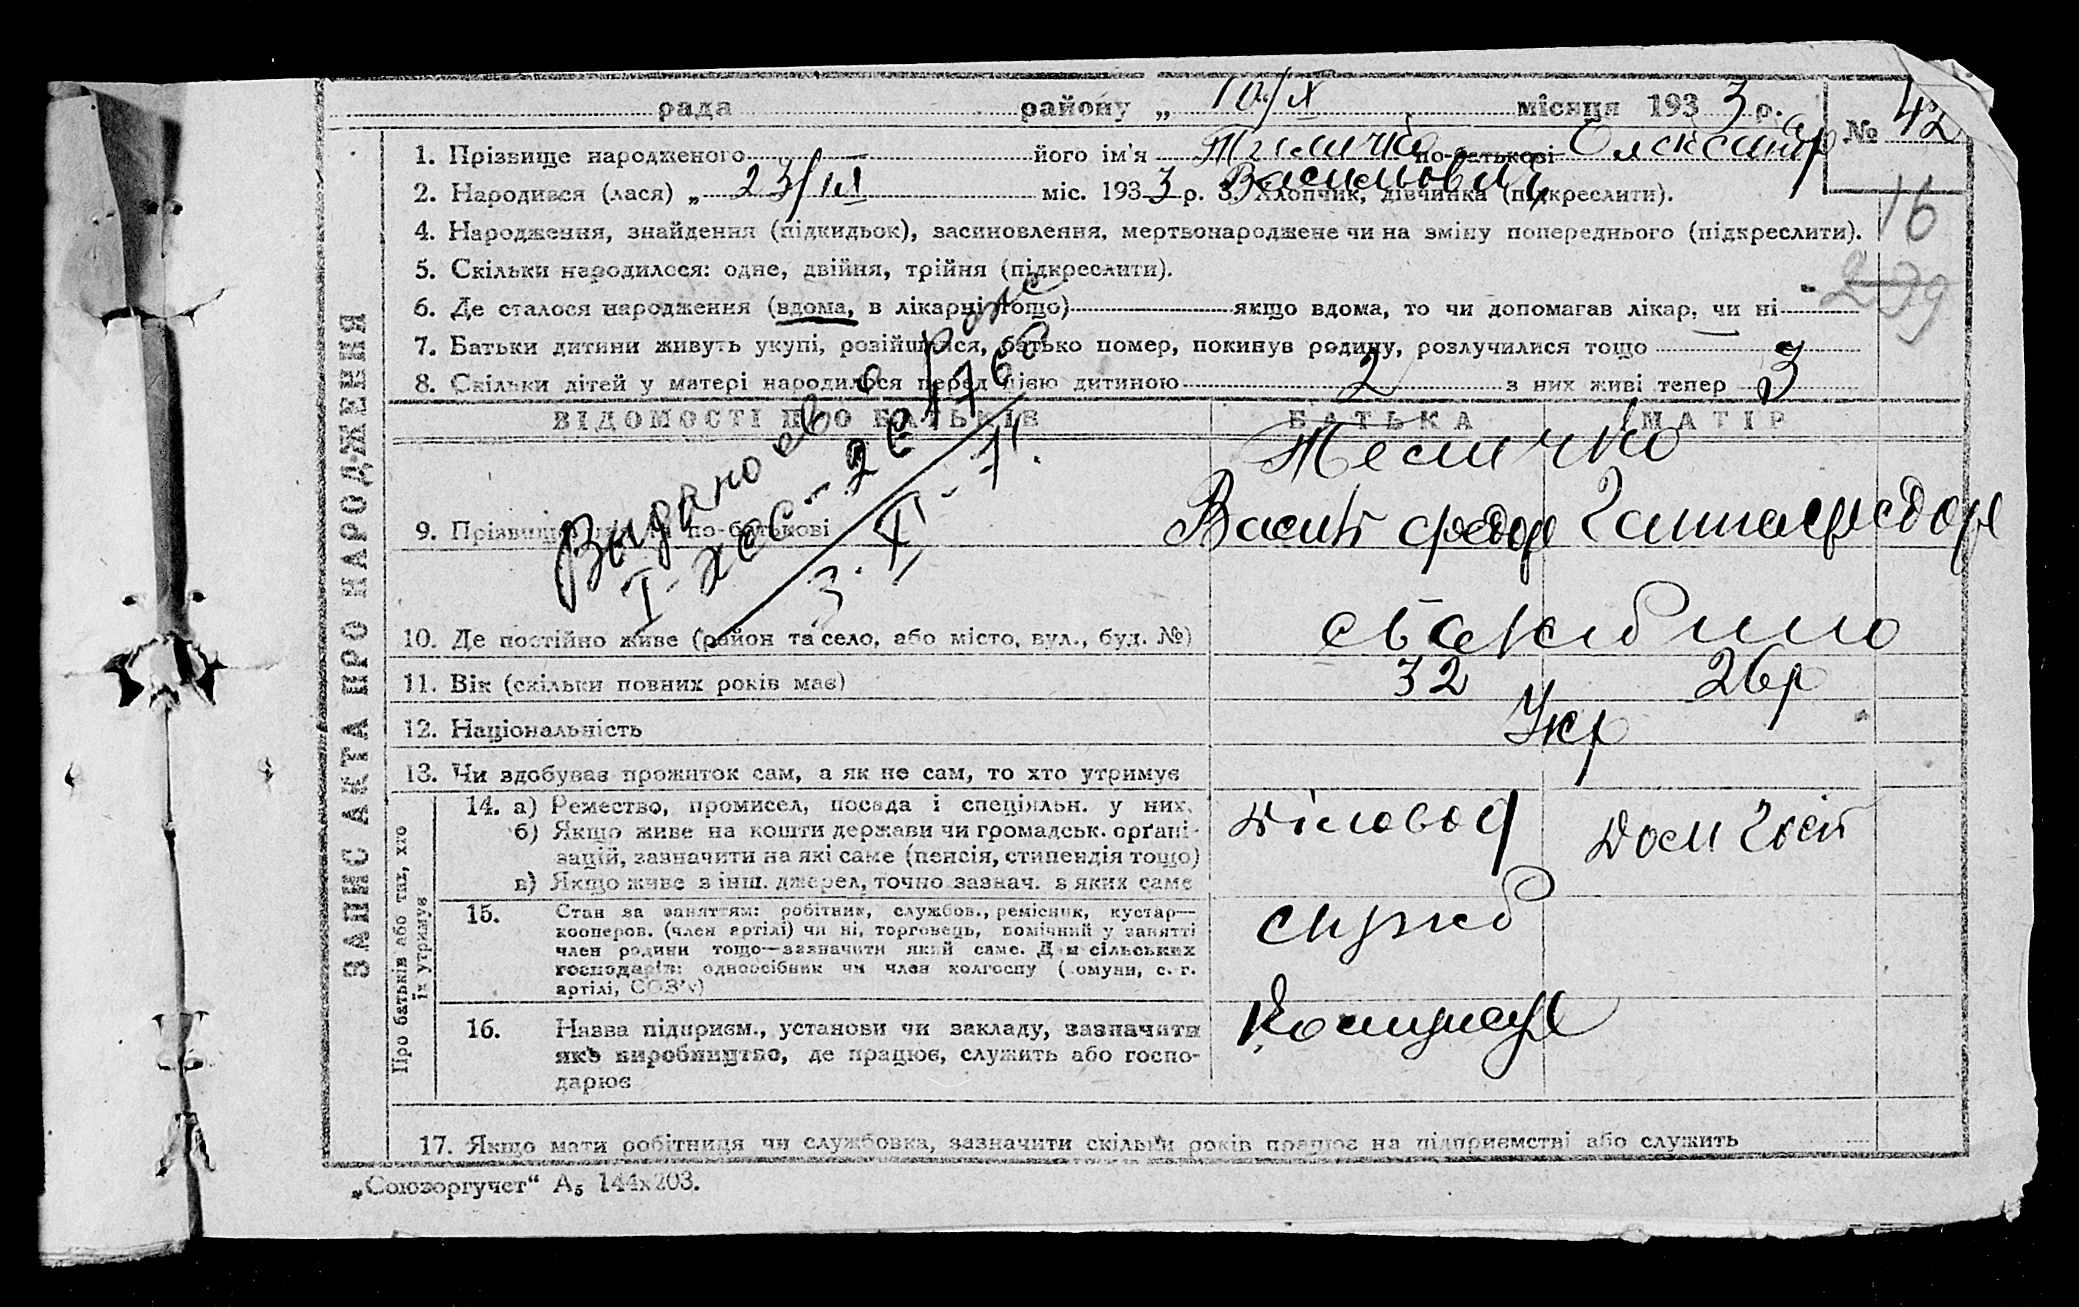 рада района „ 10/IX місяця 193 3 р. № 42
1. Прізвище народженого його ім'я Теличко по-батькові Олександр
2. Народився (лася) „ 23/III міс. 193 3 р. 3. Хлопчик, дівчинка (підкреслити).
Васильович
16
4. Народження, знайдення (підкидьок), засиновлення, мертвонароджене чи на зміну попереднього (підкреслити).
5. Скільки народилося: одне, двійня, трійня (підкреслити).
239
6. Де сталося народження (вдома, в лікарні тощо) якщо вдома, то чи допомагав лікар, чи ні
7. Батьки дитини живуть укупі, розійшлися, батько помер, покинув родину, розлучилися тощо
8. Скільки дітей у матері народилося перед цією дитиною 2 з них живі тепер 3
ВІДОМОСТІ ПРО БАТЬКІВ БАТЬКА МАТІР
Теличко
9. Прізвище, ім'я та по-батькові Василь Федор Ганна Федор
Выдано св о рожд
3. XI-71.
10. Де постійно живе (район та село, або місто, вул., буд. №)
11. Вік (скільки повних років має) 32 26р
12. Національність Укр
13. Чи здобував прожиток сам, а як не сам, то хто утримує
14. а) Ремество, промисел, посада і спеціяльн. у них. діловод дом госп
б) Якщо живе на кошти держави чи громадськ. органі-
зацій, зазначити на які саме (пенсія, стипендія тощо)
в) Якщо живе з інш. джерел, точно зазнач. з яких саме
15. Стан за заняттям: робітник, службов., ремісник, кустар— служб
кооперов. (член артілі) чи ні, торговець, помічний у занятті
член родини тощо—зазначити який саме. Для сільських
господарів: одноосібник чи член колгоспу (комуни, с.-г.
артілі, СОЗ'у)
16. Назва підприєм., установи чи закладу, зазначити
яке виробництво, де працює, служить або госпо-
дарює
17. Якщо мати робітниця чи службовка, зазначити скільки років працює на підприємстві або служить
„Союзоргучет“ А₅ 144х203.
ЗАПИС АКТА ПРО НАРОДЖЕННЯ
Про батьків або тих, хто
їх утримує